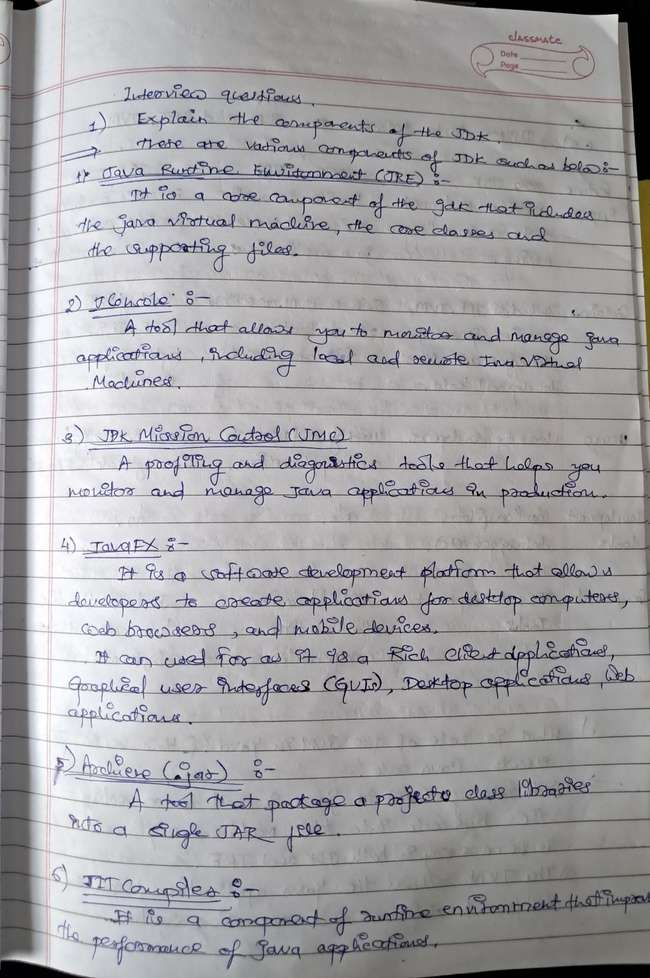 classmate
Date
Page
Interview questions.
1) Explain the components of the JDK.
→ There are various components of JDK such as below:-
1) Java Runtime Environment (JRE) :-
It is a core component of the jdk that includes
the java virtual machine, the core classes and
the supporting files.
2) JConsole :-
A tool that allows you to monitor and manage java
applications, including local and remote Java Virtual
Machines.
3) JDK Mission Control (JMC)
A profiling and diagnostics tools that helps you
monitor and manage Java applications in production.
4) JavaFX :-
It is a software development platform that allows
developers to create applications for desktop computers,
web browsers, and mobile devices.
It can used for as it is a Rich client applications,
Graphical user interfaces (GUIs), Desktop applications, Web
applications.
5) Archiere (.jar) :-
A tool that package a projects class libraries
into a single JAR file.
6) JIT Compiler :-
It is a component of runtime environment that improv
the performance of java applications.